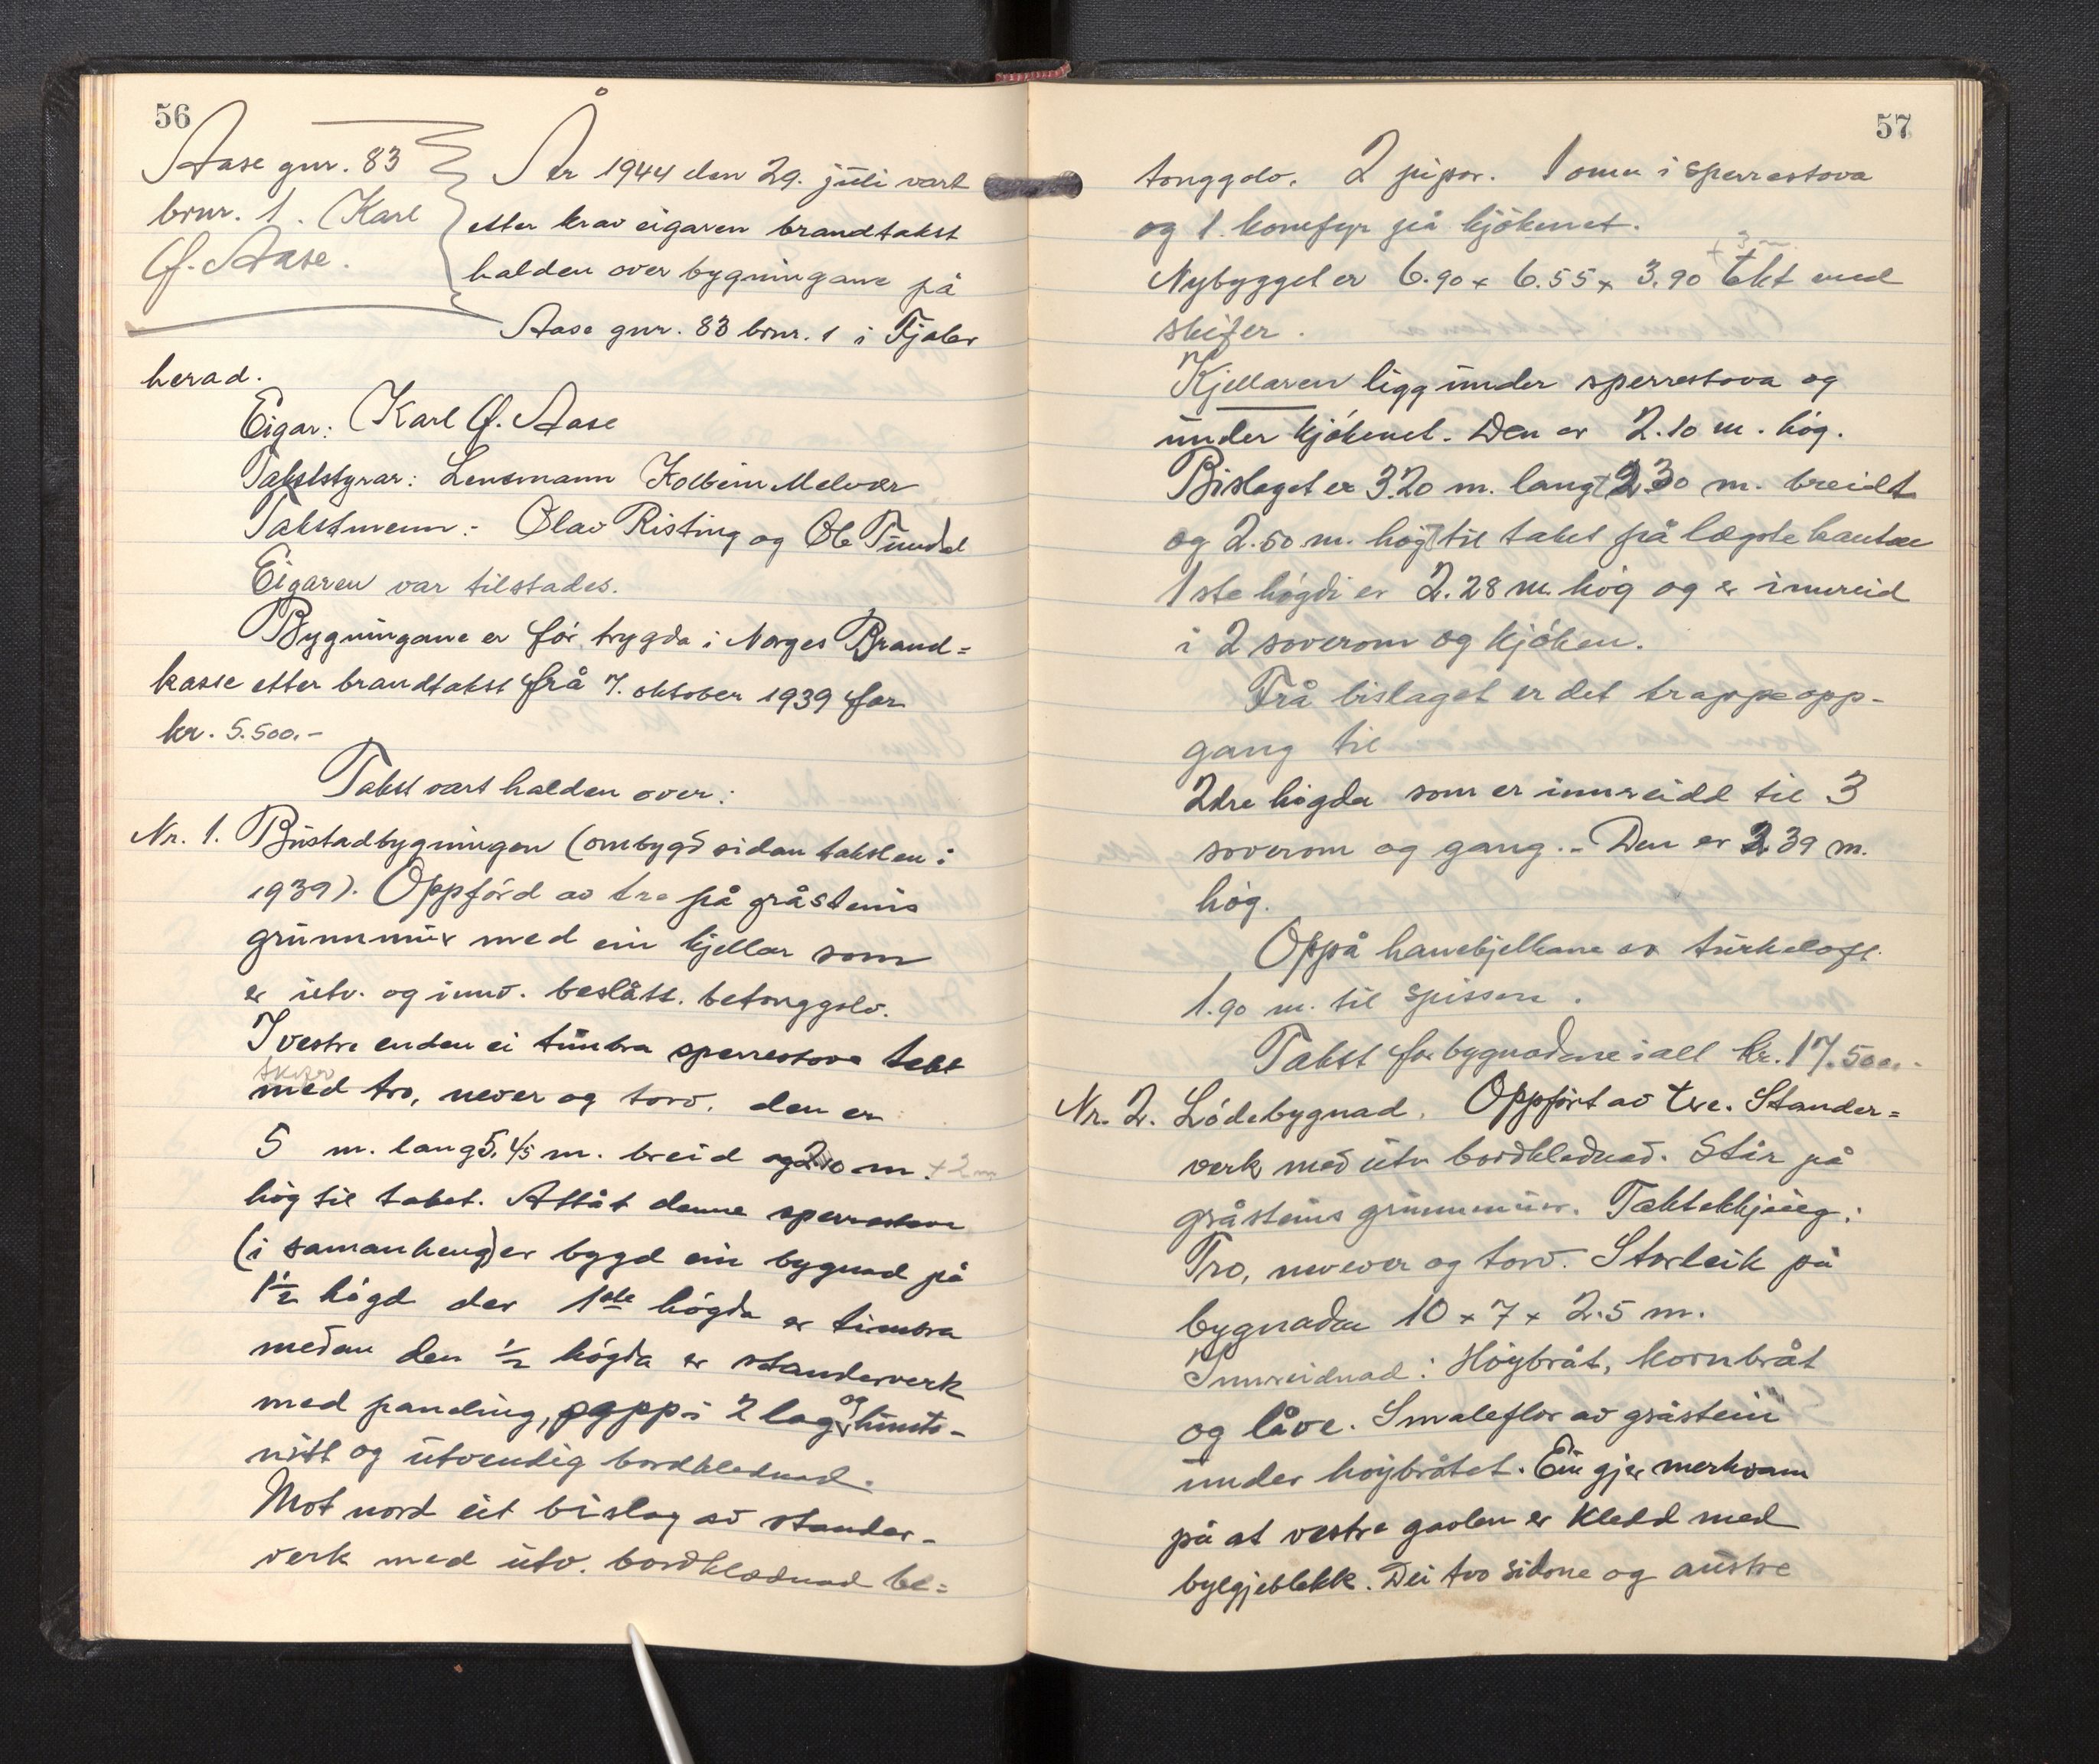 56
Aase gnr. 83
brnr. 1. Karl
J. Aase.
År 1944 den 29. juli vart
etter krav eigaren brandtakst
halden over bygningane på
Aase gnr. 83 brnr. 1 i Fjaler
herad.
Eigar: Karl J. Aase
Takststyrar: Lensmann Kolbein Melvær
Takstmenn: Olav Risting og Ole Tundal
Eigaren var tilstades.
Bygningane er før trygda i Norges Brand=
kasse etter brandtakst frå 7. oktober 1939 for
kr. 5.500.-
Takst vart halden over:
Nr. 1. Bustadbygningen (ombygd sidan taksten i
1939). Oppførd av tre på gråsteins
grunnmur med ein kjellar som
er utv. og innv. beslått. betonggolv.
I vestre enden ei timbra sperrestova tekt
skifer
med tro, never og torv. den er
5 m. lang 5.45 m. breid og 2.10 m. + 2 m
høg til taket. Attåt denne sperrestova
(i samanheng) er bygd ein bygnad på
1½ høgd der 1ste høgda er timbra
medan den ½ høgda er standerverk
med paneling, papp i 2 lag og hunto-
nitt og utvendig bordklednad.
Mot nord eit bislag av stander-
verk med utv. bordklædnad be=
57
tonggolv. 2 pipor. 1 omn i sperrestova
og 1 komfyr på kjøkenet.
+ 3 m.
Nybygget er 6.90 x 6.55 x 3.90 tekt med
skifer.
Kjellaren ligg under sperrestova og
under kjøkenet. Den er 2.10 m. høg.
Bislaget er 3.20 m. langt 2.30 m. breidt
og 2.50 m. høgt til taket på lægste kanten
1ste høgdi er 2.28 m. høg og er innreid
i 2 soverom og kjøken.
Frå bislaget er det trappeopp-
gang til
2dre høgda som er innreidd til 3
soverom og gang. - Den er 2 39 m.
høg.
Oppå hanebjelkane er turkeloft.
1.90 m. til spissen.
Takst for bygnadene i alt kr. 17.500.-
Nr. 2. Lødebygnad. Oppført av tre. Stander=
verk med utv bordklednad. Står på
gråsteins grunnmur. Taktekkjing:
Tro, nevever og torv. Storleik på
bygnaden 10 x 7 x 2.5 m.
Innreidnad: Høybråt, kornbråt
og låve. Smaleflor av gråstein
under høybråtet. Ein gjer merksam
på at vestre gavlen er kledd med
bylgjeblekk. Dei tvo sidone og austre